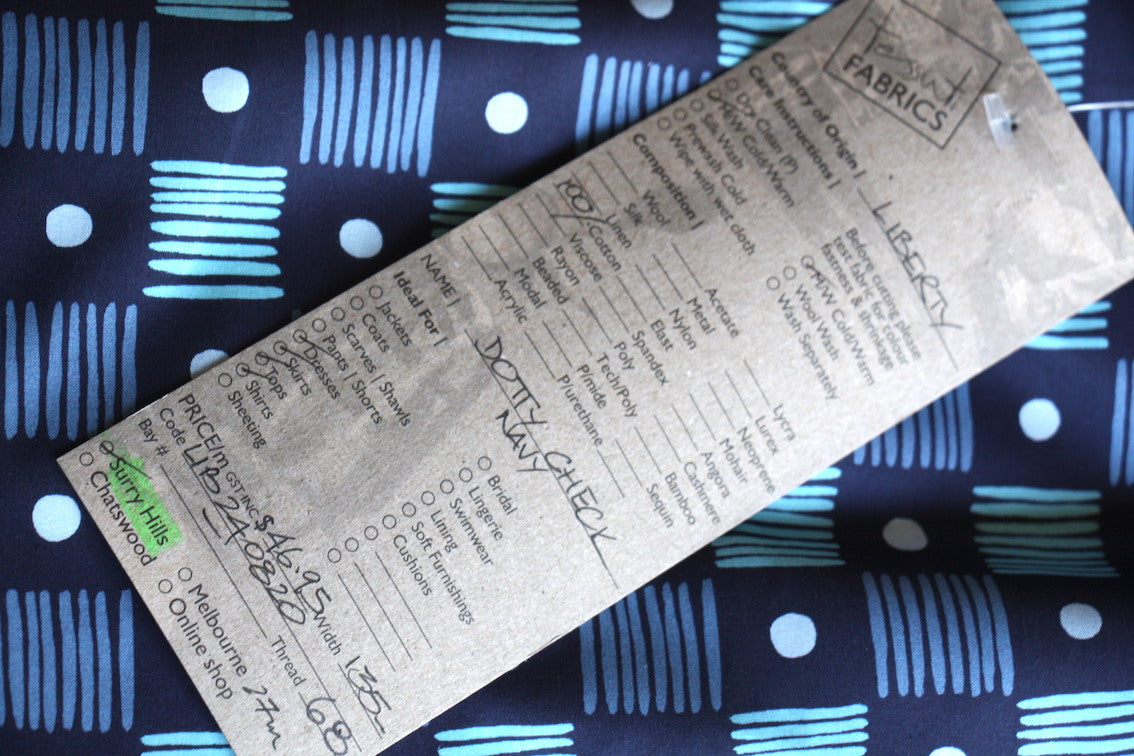 Tessuti
FABRICS
Country of Origin | LIBERTY
Care Instructions |
Before cutting please
test fabric for colour
fastness & shrinkage
Dry Clean (P)
H/W Cold/Warm
Silk Wash
Prewash Cold
Wipe with wet cloth
H/W Cold/Warm
Wool Wash
Wash Separately
Composition |
Wool
Silk
Linen
100% Cotton
Viscose
Rayon
Beaded
Modal
Acrylic
Acetate
Metal
Nylon
Elast
Spandex
Poly
Tech/Poly
P/mide
P/urethane
Lycra
Lurex
Neoprene
Mohair
Angora
Cashmere
Bamboo
Sequin
NAME | DOTTY CHECK
NAVY
Ideal For |
Jackets
Coats
Scarves | Shawls
Pants | Shorts
Dresses
Skirts
Tops
Shirts
Sheeting
Bridal
Lingerie
Swimwear
Lining
Soft Furnishings
Cushions
PRICE/m GST INC $46.95 Width 135
Code LIB240820 Thread 68
Bay #
Surry Hills
Chatswood
Melbourne 27m
Online shop